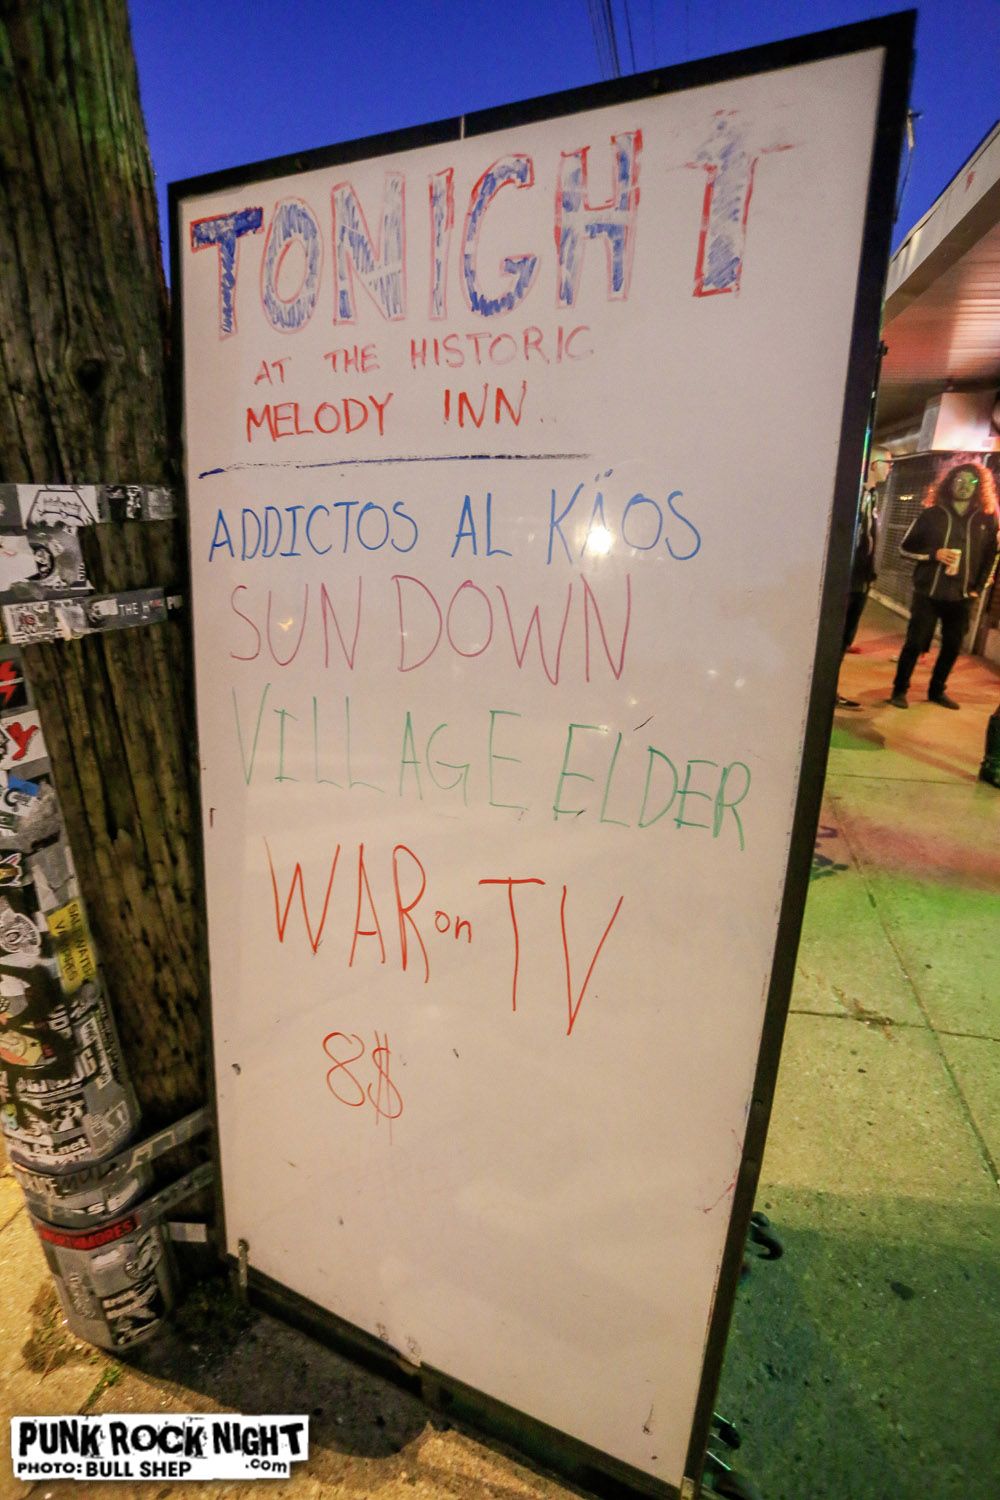 TONIGHT
AT THE HISTORIC
MELODY INN
ADDICTOS AL KÄOS
SUN DOWN
VILLAGE ELDER
WAR on TV
8$
THE
PUNK ROCK NIGHT
.com
PHOTO: BULL SHEP